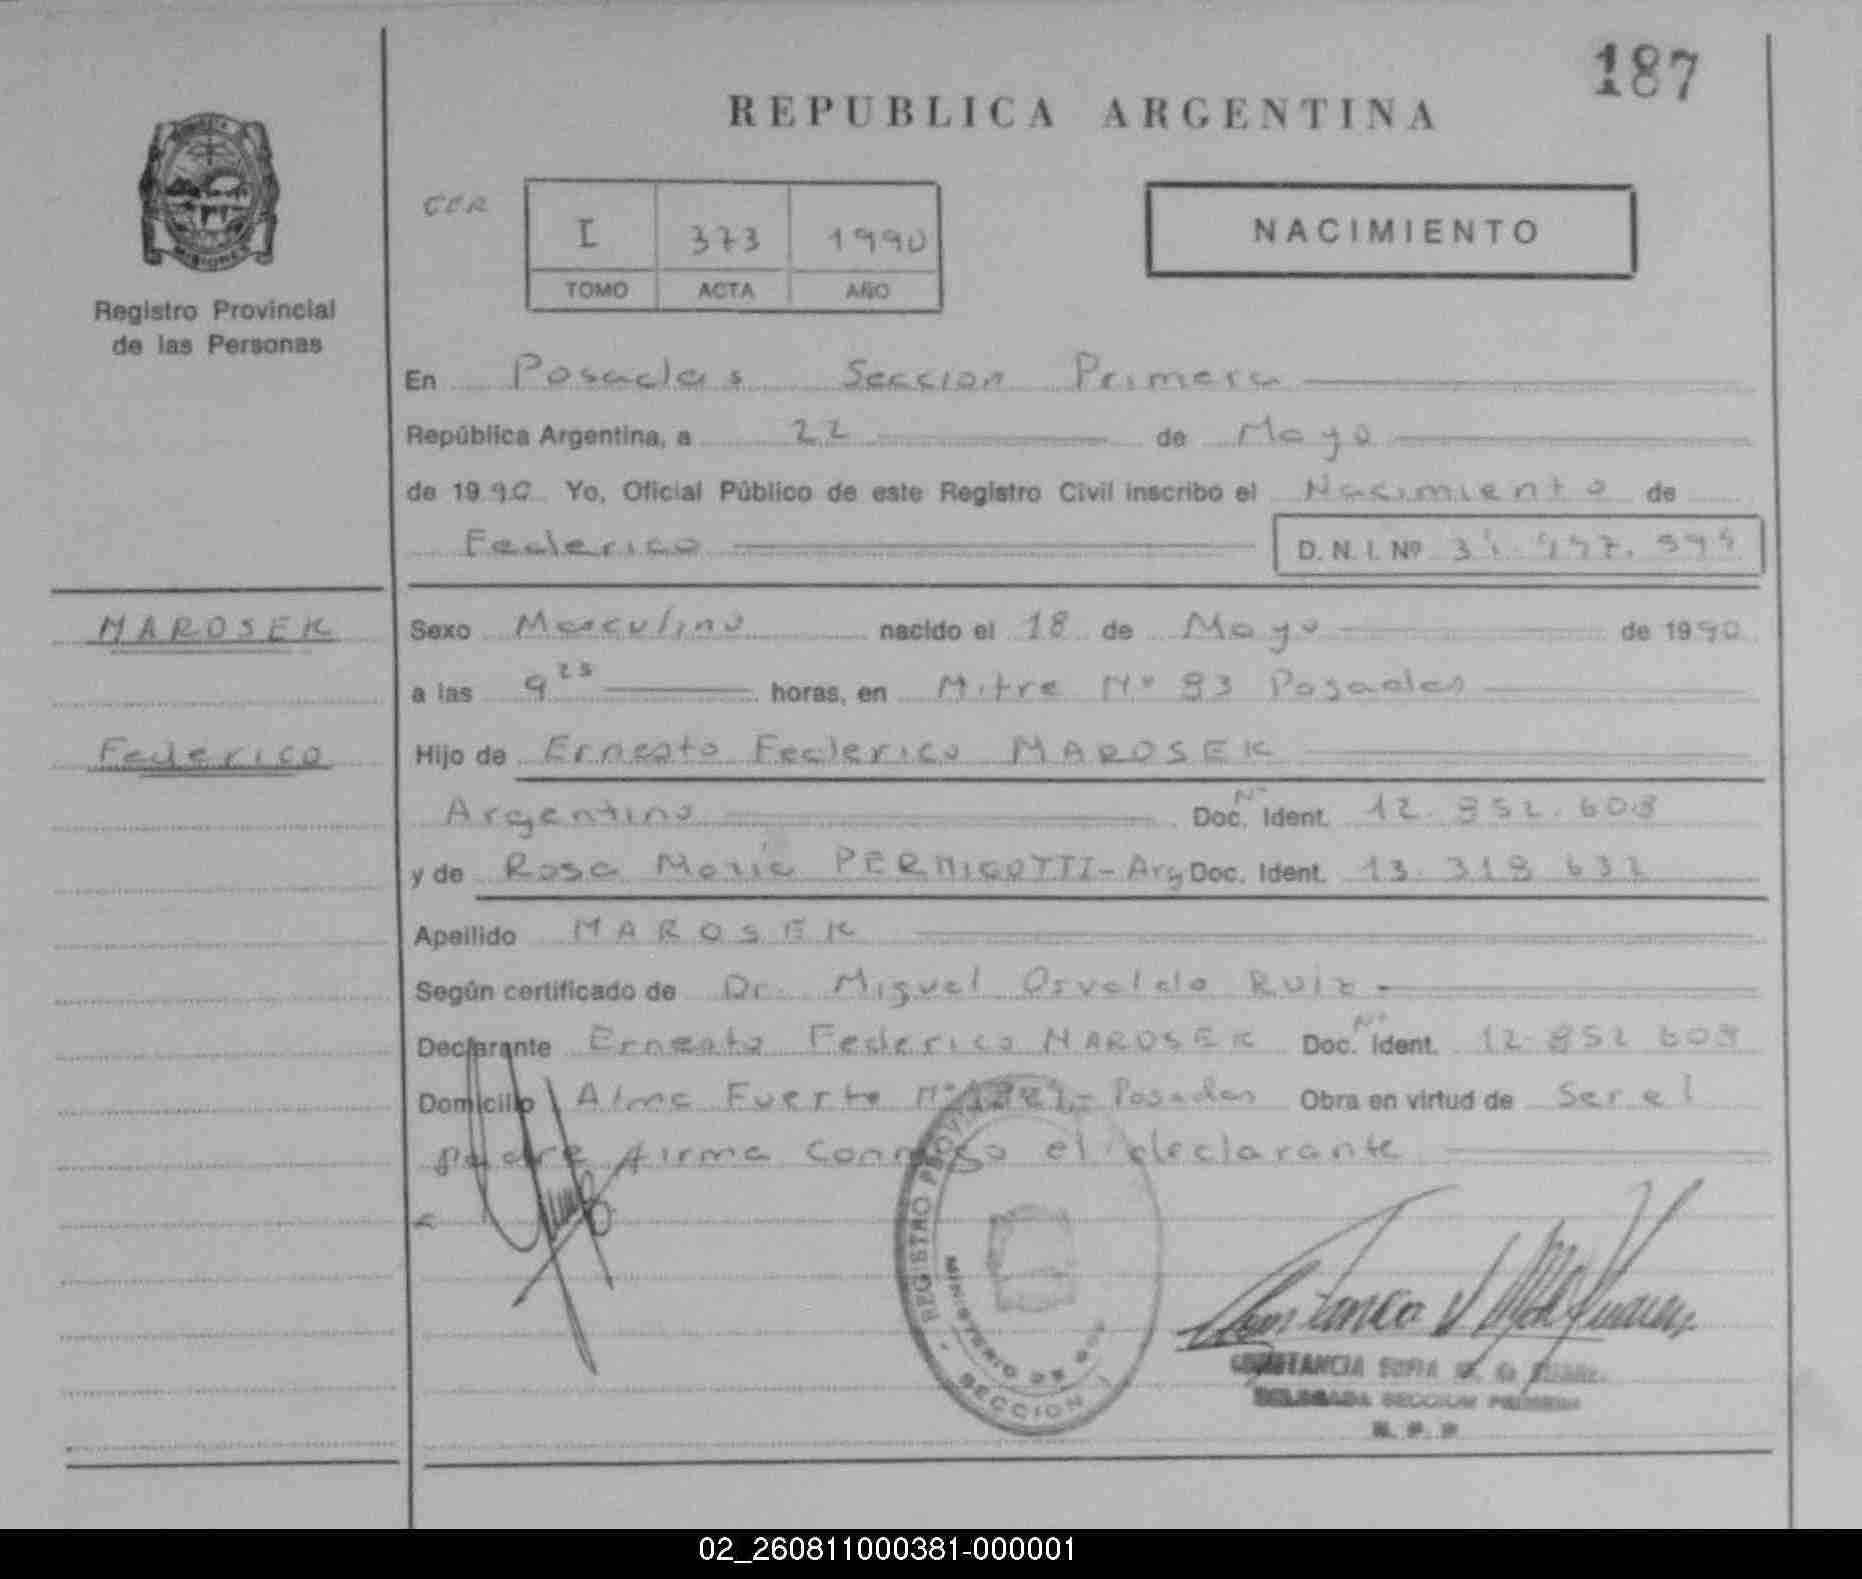 187
REPUBLICA ARGENTINA
MISIONES
Registro Provincial
de las Personas
I 373 1990
TOMO ACTA AÑO
NACIMIENTO
En Posadas Seccion Primera
República Argentina, a 22 de Mayo
de 1990 Yo, Oficial Público de este Registro Civil inscribo el Nacimiento de
Federico D. N. I. Nº
MAROSEK
Federico
Sexo Masculino nacido el 18 de Mayo de 1990
a las 9 25 horas, en Mitre Nº 93 Posadas
Hijo de Ernesto Federico MAROSEK
Argentino Doc. Nº Ident. 12.852.608
y de Rosa Maria PERNIGOTTI - Arg Doc. Ident. 13.318.632
Apellido MAROSEK
Según certificado de Dr. Miguel Osvaldo Ruiz
Declarante Ernesto Federico MAROSEK Doc. Nº Ident. 12.852.608
Domicilio Alma Fuerte Posadas Obra en virtud de Ser el
padre firma conmigo el declarante
REGISTRO
MINISTERIO DE
SECCION
CONSTANCIA SOFIA
DELEGADA SECCION PRIMERA
02_260811000381-000001